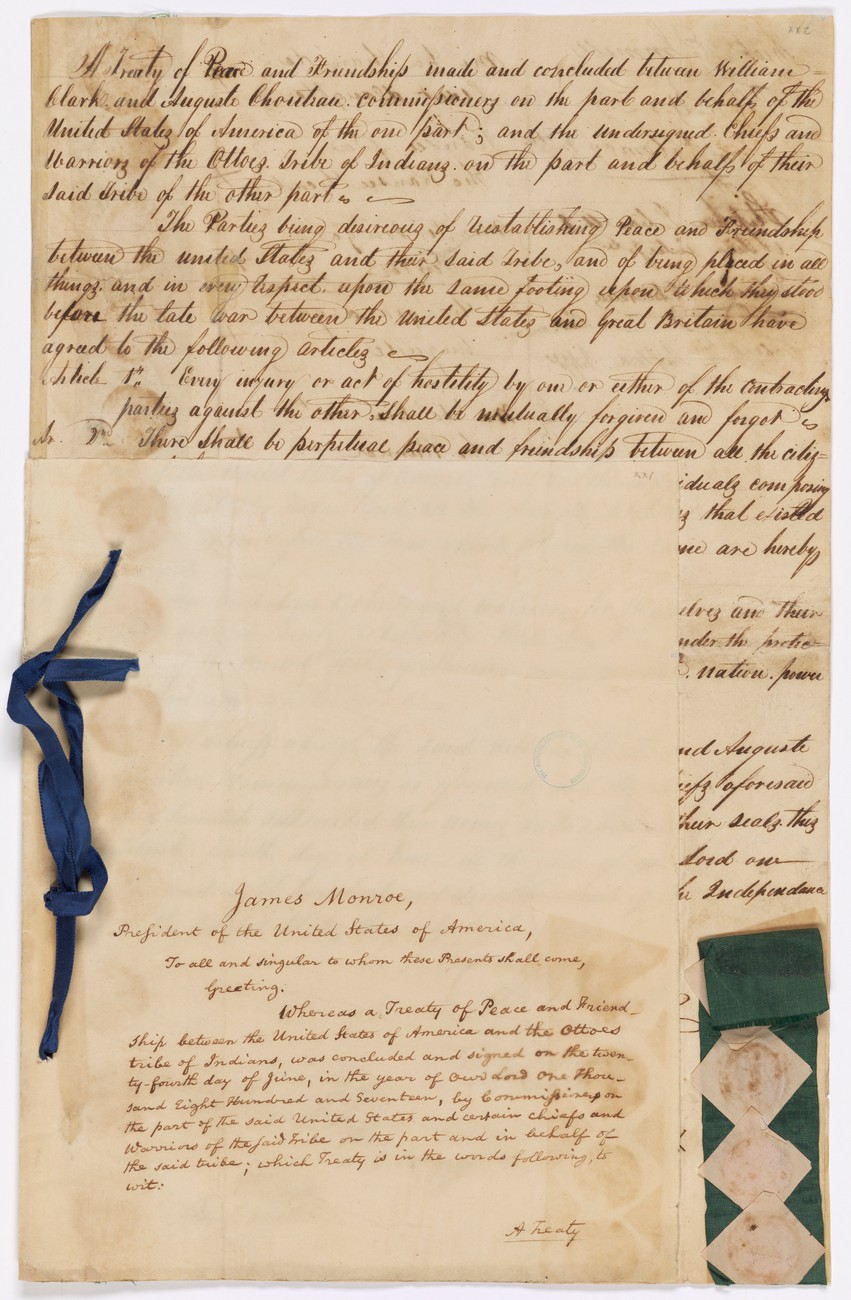 XX2
A Treaty of Peace and Friendship made and concluded between William=
Clark and Auguste Chouteau. Commissioners on the part and behalf, of the
United States of America of the one part; and the undersigned Chiefs and
Warriors of the Ottoes Tribe of Indians. on the part and behalf of their
said Tribe of the other part
The Parties being desireous of reestablishing Peace and Friendship
between the united States and their said Tribe, and of being placed in all
things. and in every respect. upon the same footing upon which they stood
before the late war between the United States and Great Britain have
agreed to the following articles
Article 1st. Every injury or act of hostility by one or either of the contracting
parties against the other, Shall be mutually forgiven and forgot
Ar. 2d. There Shall be perpetual peace and friendship between all the citiz=
XXI
iduals composing
s that existed
me are hereby
elves and their
nder the protec=
nation. power
nd Auguste
iefs aforesaid
their seals this
lord one
he Independance
James Monroe,
President of the United States of America,
To all and singular to whom these Presents shall come,
Greeting:
Whereas a Treaty of Peace and Friend-
ship between the United States of America and the Ottoes
tribe of Indians, was concluded and signed on the twen-
ty-fourth day of June, in the year of Our Lord One Thou-
sand Eight Hundred and Seventeen, by Commissioners on
the part of the said United States and certain chiefs and
Warriors of the said Tribe on the part and in behalf of
the said tribe; which Treaty is in the words following, to
wit:
A Treaty